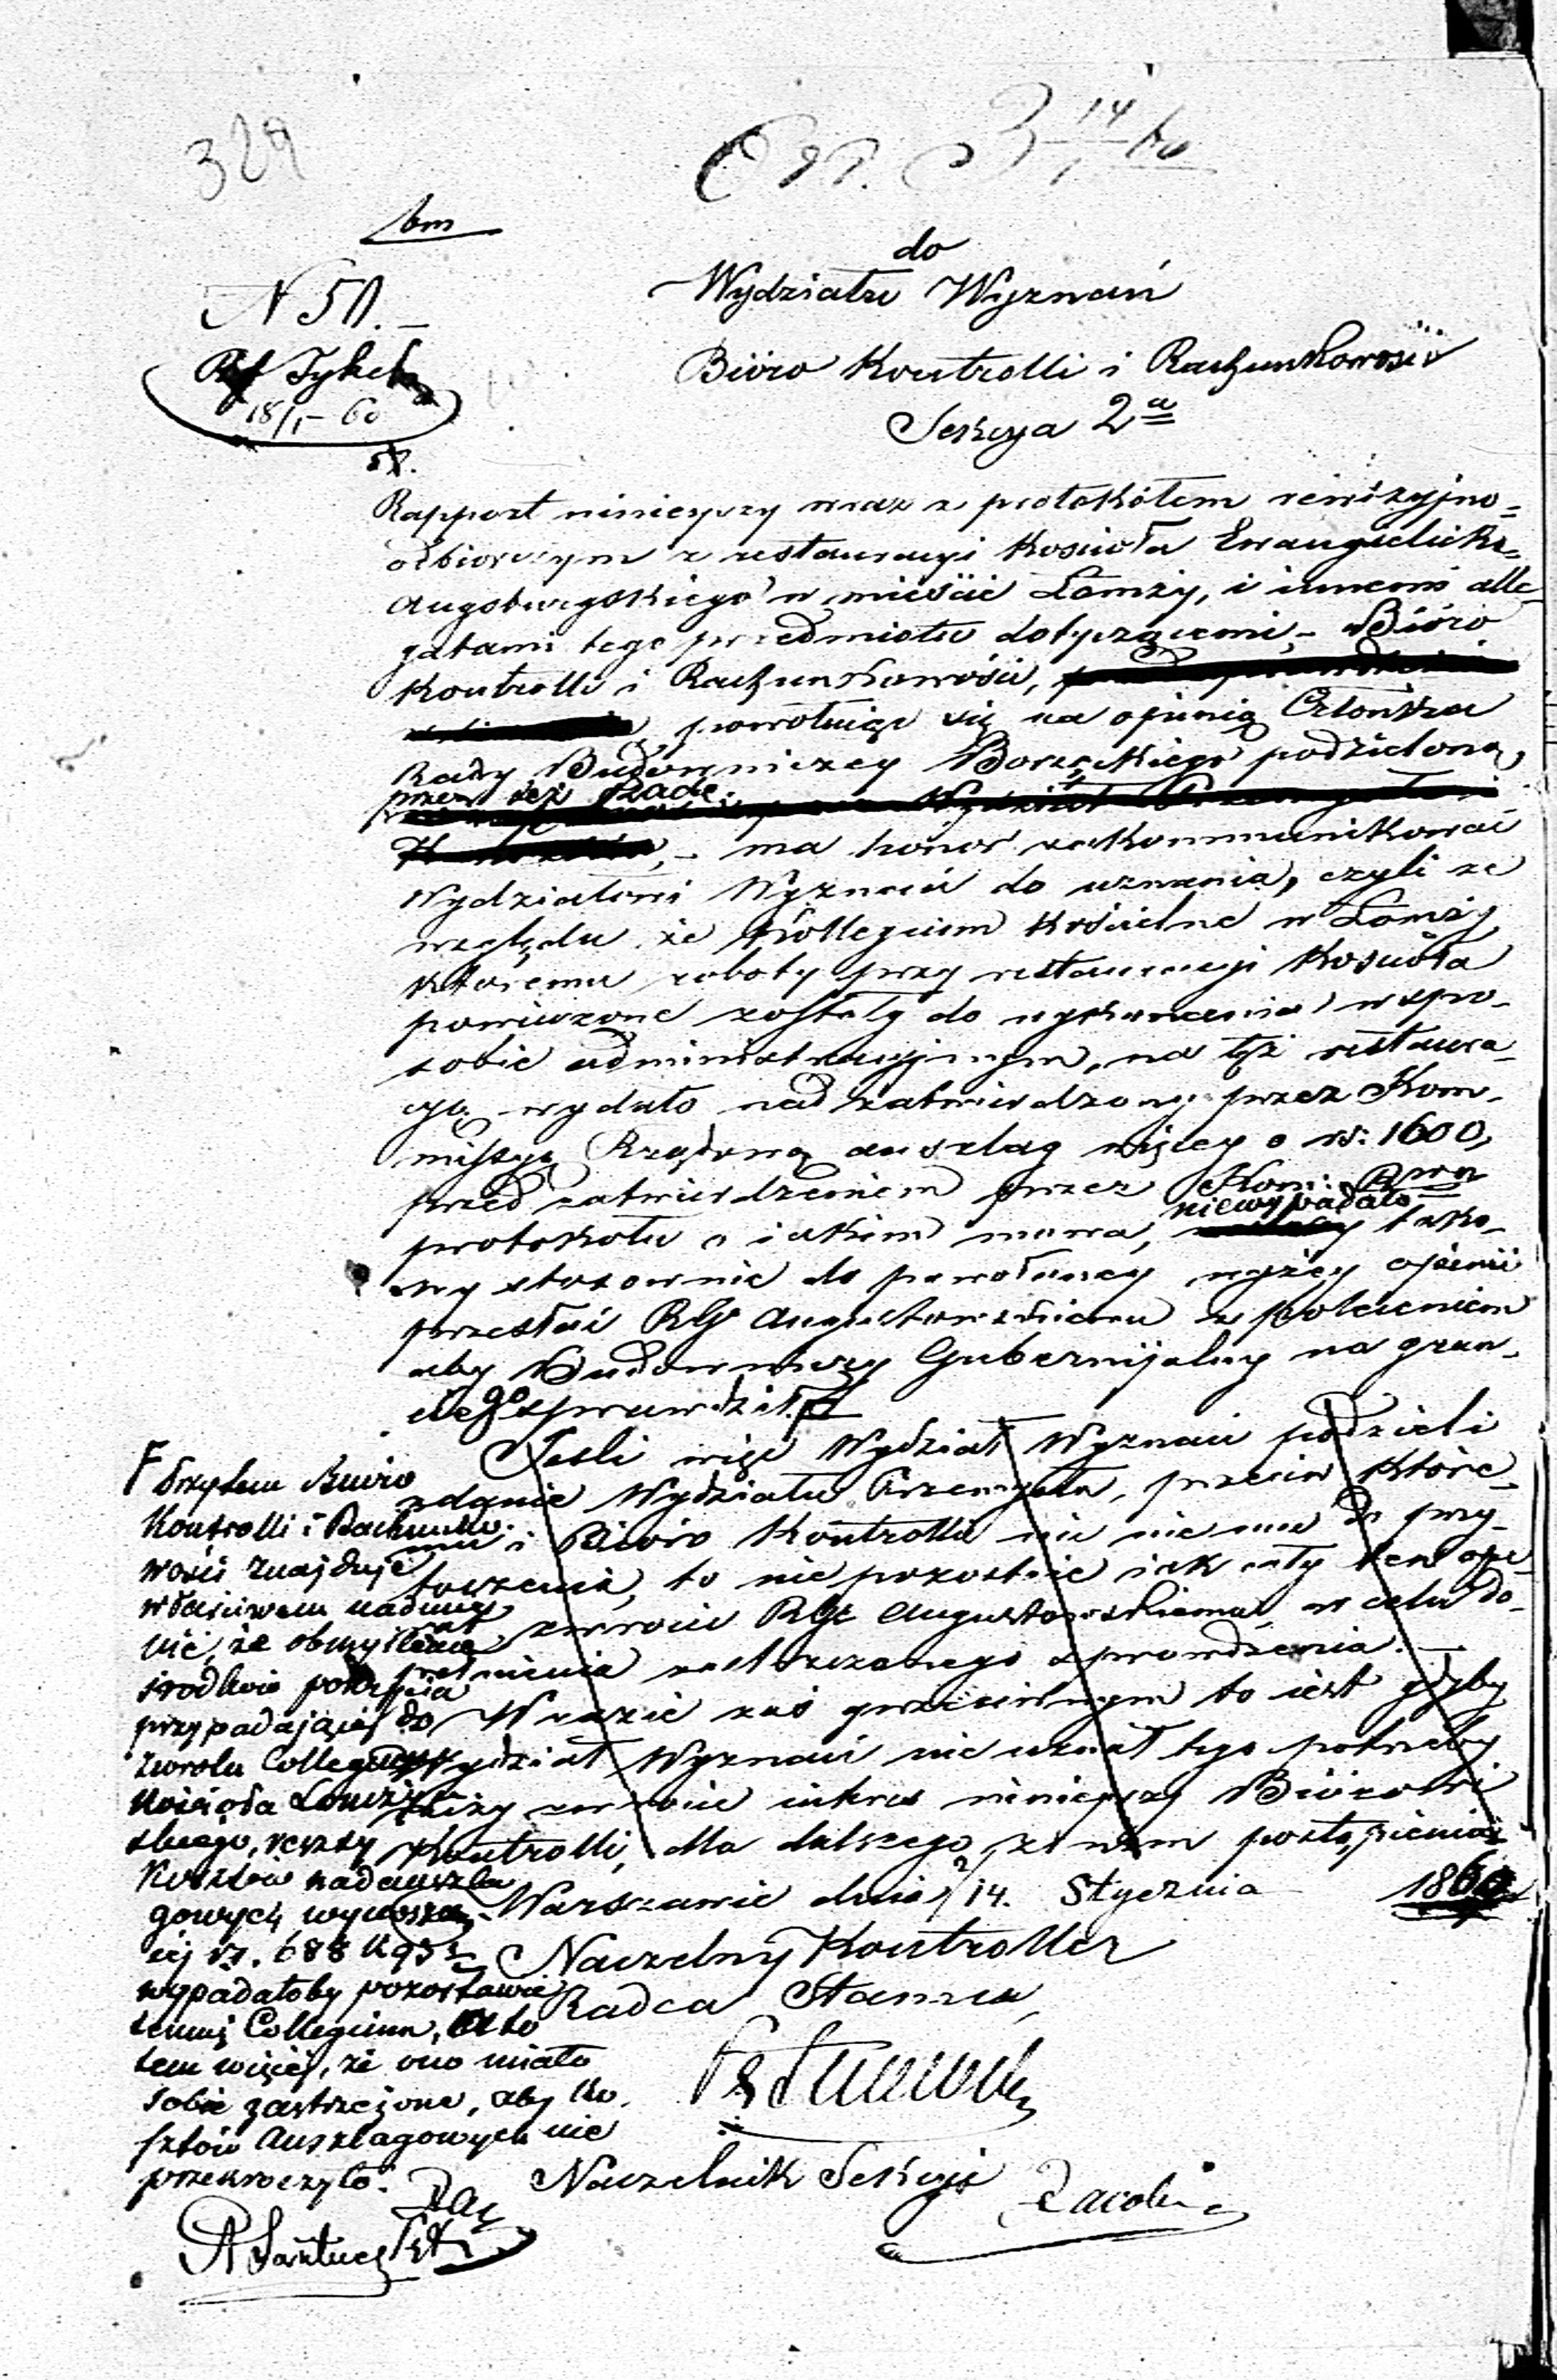 329
14
do
N 50.
Wydziału Wyznań
Tykel
Biuro Kontrolli i Rachunkowości
18/1 60
Sekcya 2a
Rapport niniejszy wraz z protokółem rewizyjno=
odbiorczym z restauracyi Kościoła Ewangielicko=
Augsburgskiego w mieście Łomży, i innemi alle-
gatami tego przedmiotu dotyczącemi, Biuro
Kontrolli i Rachunkowości,
powołując się na opinią Członka
Rady Budowniczey podzieloną,
przez też Radę
ma honor zakommunikować
Wydziałowi Wyznań do uznania, czyli ze
względu, że Kollegium Kościelne w Łomży
któremu roboty przy restauracyi Kościoła
powierzone zostały do wykonania w spo-
sobie administracyjnym, na tęż restaura-
cyą wydało nad zatwierdzony przez Kom-
missyą Rządową anszlag więcey o rs: 1600,
przed zatwierdzeniem przez Kom: Rwą
niewypadało
protokołu o jakim mowa, tako-
wy stosownie do powołaney wyżey opinii
przesłać RGu Augustowskiemu z poleceniem
aby Budowniczy Gubernijalny na grun-
cie go sprawdził.
Jeśli więc Wydział Wyznań podzieli
zdanie Wydziału Przemysłu, przeciw które-
mu i Biuro Kontrolli nic nie ma do przy-
toczenia, to nie pozostaje jak cały ten ope-
rat zwrócić RGu Augustowskiemu w celu do-
pełnienia zastrzeżonego sprawdzenia.
W razie zaś przeciwnym to jest gdyby
Wydział Wyznań nie uznał tego potrzeby
raczy zwrócić niniejszy Biurowi
Kontrolli, dla dalszego z nim postąpienia
Warszawie dnia 2/14. Stycznia 1860
Naczelny Kontroller
Radca Stanu
Naczelnik Sekcyi
F Przytem Biuro
Kontrolli i Rachunko-
wości znajduje
właściwem nadmie
nić, że obmyślenie
środków pokrycia
przypadającej do
zwrotu Collegium
Kościoła Łomżyń
skiego, reszty
Kosztów nadanszla
gowych wynoszą-
cej rs. 688 k 93 ½
wypadałoby pozostawić
temuż Collegium, a to
tem więcej, że ono miało
sobie zastrzeżone, aby ko-
sztów Anszlagowych nie
przekroczyło.